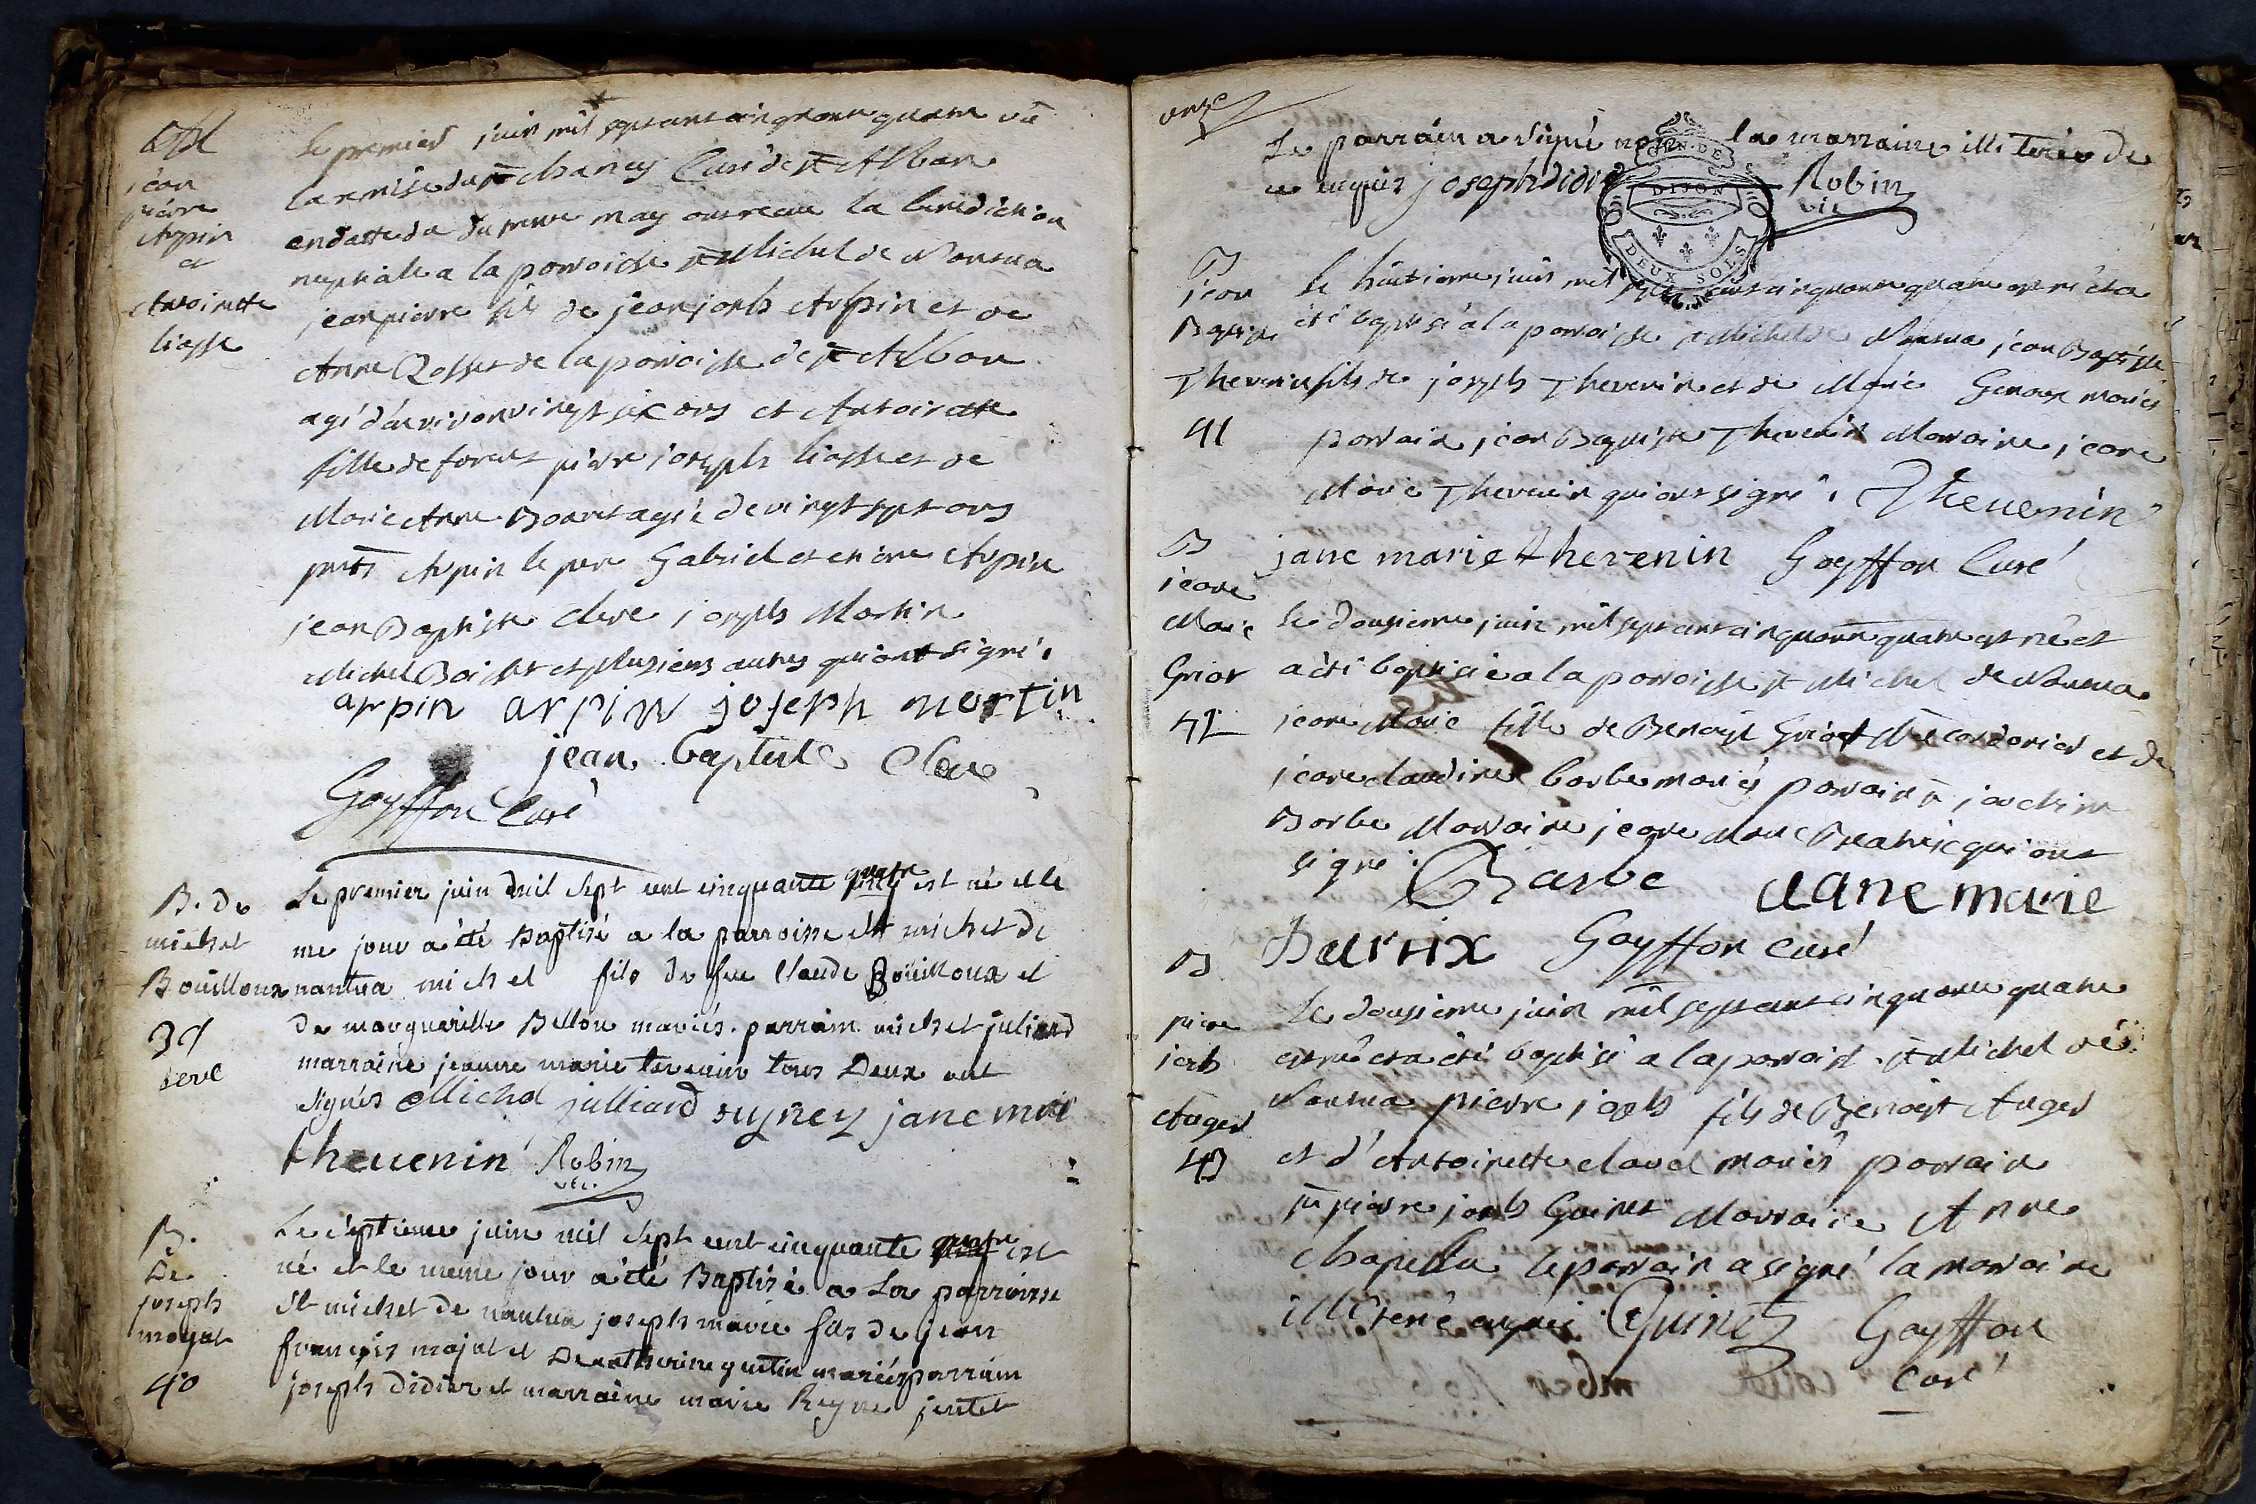 jean
pierre
Arpin
et
Antoinette
liasse
Le premier juin mil sept cent cinquante quatre vû
la remise du Sr Chaney Curé de St Alban
en datte du du trente may ont receu la benediction
nuptiale a la parroisse St Michel de Nantua
jean pierre fils de jean joseph Arpin et de
Anne Rosset de la parroisse de St Alban
agé d'environ vingt six ans et Antoinette
fille de forent pierre joseph liasse et de
Marie Anne agée de vingt sept ans
pnts Arpin le pere Gabriel et Arpin
jean Baptiste Clerc joseph Martin
Michel et plusieurs autres qui ont signé.
arpin arpin joseph martin
jean baptiste Clerc
Goyffon Curé
B. De
michel
Bouilloux
39
Le premier juin mil sept cent cinquante quatre est né et le
me jour a été Baptisé a la parroisse st michel de
nantua michel fils de feu Claude Boüilloux et
de margueritte Bellon mariés. parrain michel juliard
marraine jeanne marie tevenin tous Deux ont
signés Michel julliard sygney jane mari
thevenin Robin
vic.
B.
De
joseph
moyat
40
Le septieme juin mil sept cent cinquante quatre est
né et le meme jour a été Baptisé a La parroisse
St michel de nantua joseph marie fils de jean
françois majat et De catherine gutin mariés parrain
joseph didier et marraine marie Reyne jentet
onze
Le parrain a signé la marraine illiterée de
ce enquis joseph didie Robin
vic
GEN. DE
DIJON
DEUX SOLS
B
jean
Baptiste
Thevenin
41
Le huitieme juin mil sept cent cinquante quatre est né et a
été baptisé a la parroisse St Michel de Nantua jean Baptiste
fils de joseph Thevenin et de Marie Genoux mariés
parrain jean Baptiste Thevenin Marraine jeane
Marie Thevenin qui ont signé. Thevenin
jane marie thevenin Goyffon Curé
B
jeane
Marie
Griot
42
Le douzieme juin mil sept cent cinquante quatre est né et
a été baptisée a la parroisse St Michel de Nantua
jeane Marie fille de Benoist Griot Me cordonier et de
jeane claudine barbe mariés parrain Sr joachim
Barbe Marraine jeane Marie Beatrix qui ont
signé. Barbe Jane marie
Batrix Goyffon Curé
B
pierre
joseph
Auger
43
Le douzieme juin mil sept cent cinquante quatre
est né et a été baptisé a la parroisse St Michel de
Nantua pierre joseph fils de Benoist Auger
et d'Antoinette clavel mariés parrain
Sr pierre joseph Guinet Marraine Anne
Chapellu le parrain a signé la marraine
illiterée enquis Guinet Goyffon
Curé